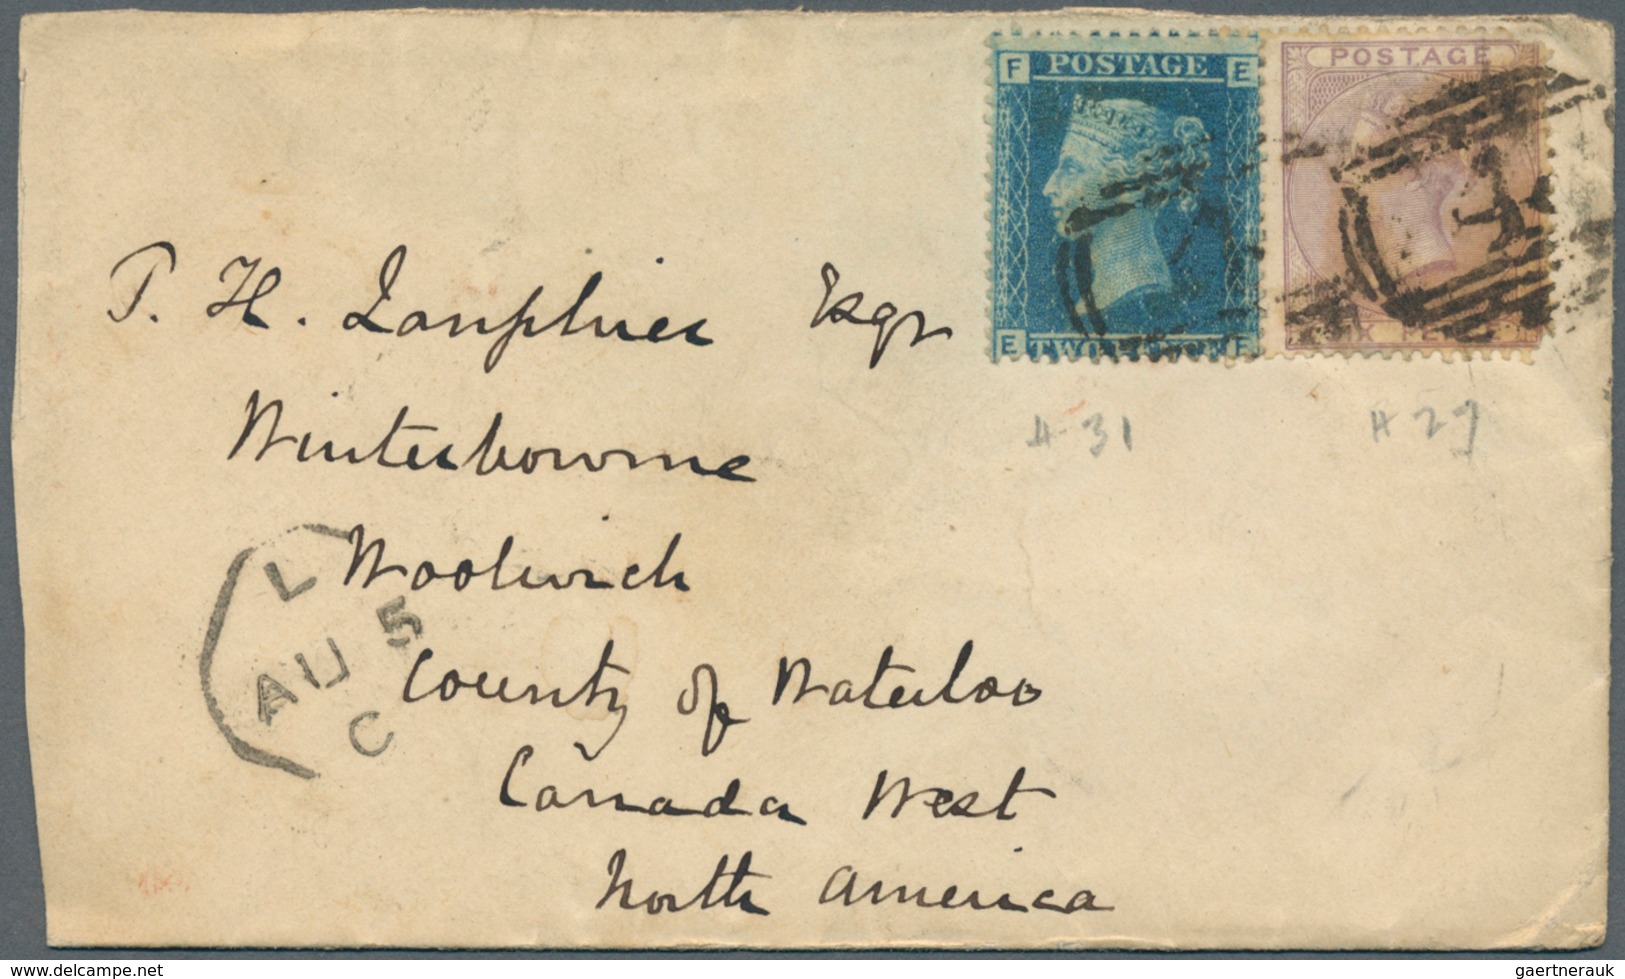 F POSTAGE E
E TWO PENCE F
POSTAGE
T. H. Lanphier Esqr
Winterbourne
Woolwich
County of Waterloo
Canada West
North America
# 31
# 27
L
AU 5
C
www.delcampe.net
gaertnerauk